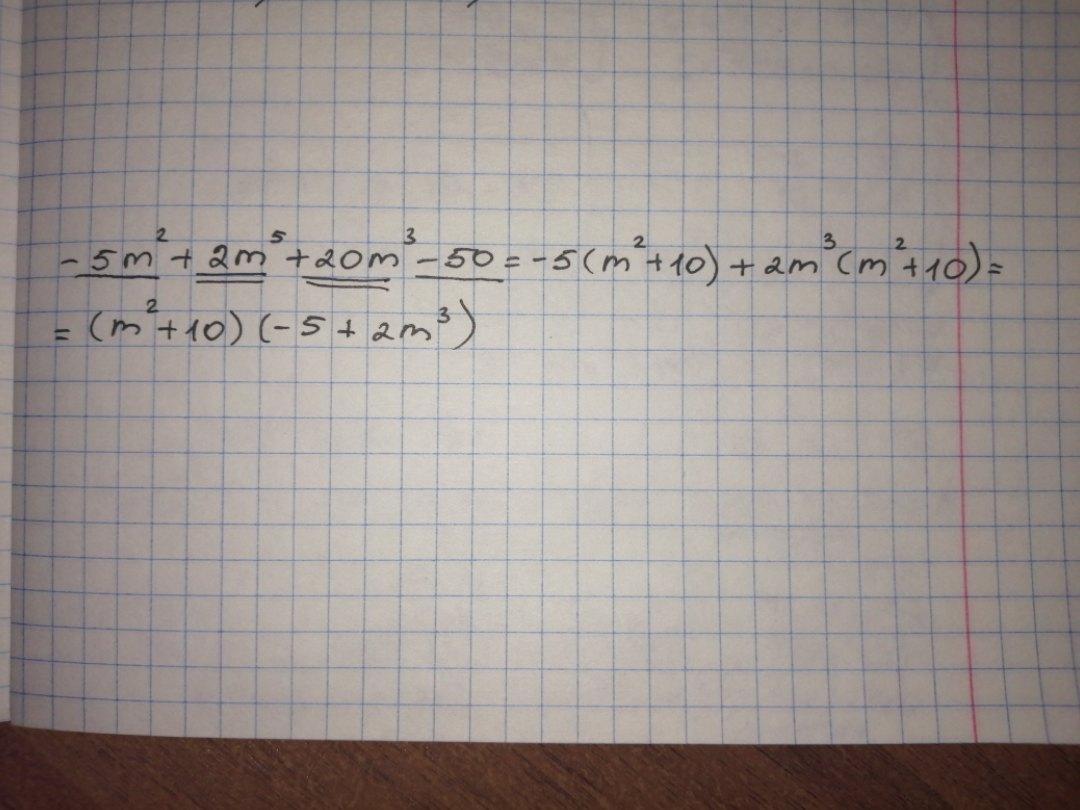 -5m²+2m⁵+20m³-50=-5(m²+10)+2m³(m²+10)=
=(m²+10)(-5+2m³)